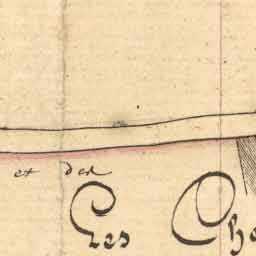 et des
Les Che